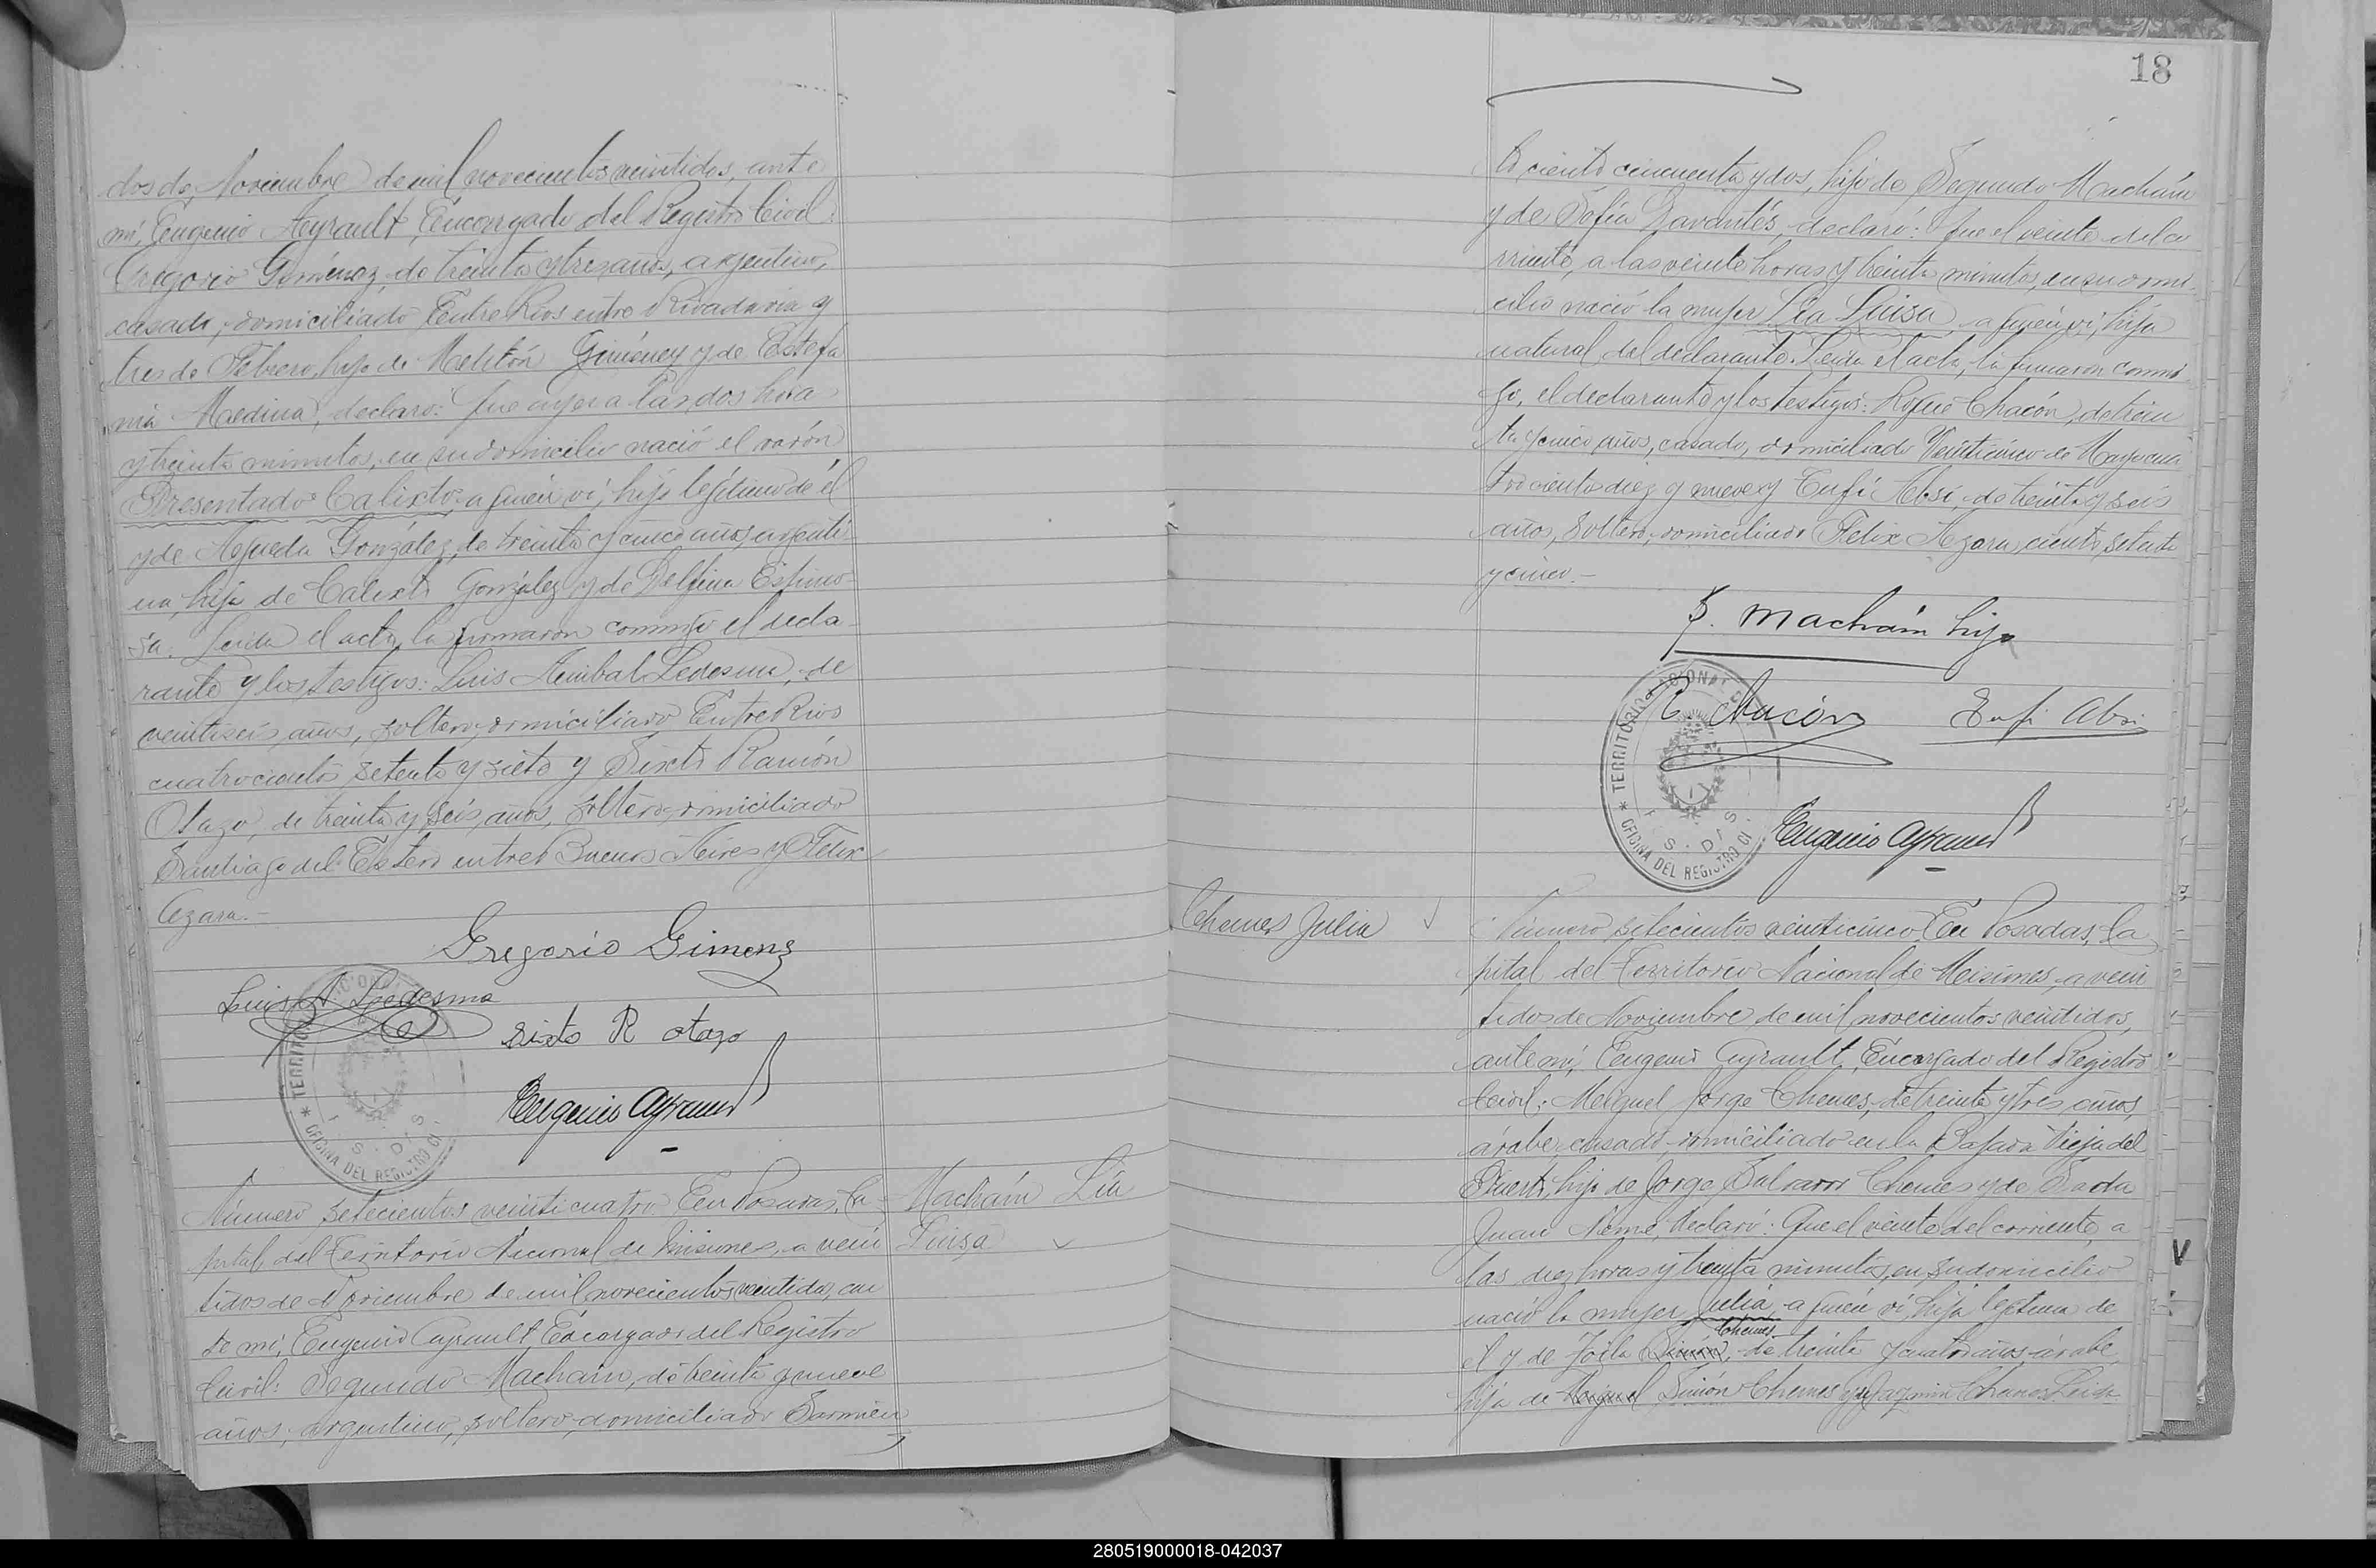 dos de Noviembre de mil novecientos veintidos, ante
mí, Eugenio Ayrault, Encargado del Registro Civil:
Gregorio Giménez, de treinta y tres años, argentino,
casado, domiciliado Entre Rios entre Rivadavia y
tres de Febrero, hijo de Melitón Giménez y de Estefa
nia Medina, declaro: Que ayer a las dos hora
y treinta minutos, en su domicilio nació el varón
Presentado Calixto, a quien ví, hijo legítimo de él
y de Agueda González, de treinta y cinco años, argenti
na, hija de Calixto González y de Delfina Espino
sa. Leida el acta, la firmaron conmigo el decla
rante y los testigos: Luis Anibal Ledesma, de
veintiseis años, soltero, domiciliado Entre Rios
cuatrocientos setenta y siete y Sixto Ramón
Otazo, de treinta y seis años, soltero, domiciliado
Santiago del Estero entre Buenos Aires y Felix
Azara.-
Gregorio Gimenz
Luis A Ledesma
Sisto R otazo
Eugenio Ayrault
Número setecientos veinticuatro En Posadas, Ca
pital del Territorio Nacional de Misiones, a vein
tidos de Noviembre de mil novecientos veintidos, an
te mí, Eugenio Ayrault, Encargado del Registro
Civil: Segundo Macháin, de treinta y nueve
años, argentino, soltero, domiciliado Sarmien
Macháin Lía
Luisa
18
to ciento cincuenta y dos, hijo de Segundo Macháin
y de Sofía declaró: Que el veinte del co
rriente, a las veinte horas y treinta minutos, en su domi
cilio nació la mujer Lía Luisa, a quien ví, hija
natural del declarante. Leida el acta, la firmaron conmi
go, el declarante y los testigos: Roque Chacón, de trein
ta y cinco años, casado, domiciliado Veinticinco de Mayo cua
trocientos diez y nueve y Eufi Absi, de treinta y seis
años, soltero, domiciliado Felix Azara ciento setenta
y cinco.-
S. Macháin hijo
R. Chacón
Eufi Absi
Eugenio Ayrault
TERRITORIO NACIONAL
OFICINA DEL REGISTRO CI
Chemes Julia
Número setecientos veinticinco En Posadas, Ca
pital del Territorio Nacional de Misiones, a vein
tidos de Noviembre de mil novecientos veintidos,
ante mí, Eugenio Ayrault, Encargado del Registro
Civil: Miguel Jorge Chemes, de treinta y tres años,
árabe, casado, domiciliado en la Bajada Vieja del
Puerto, hijo de Jorge Salvador Chemes y de Sada
Juan Neme, declaró: Que el veinte del corriente, a
las diez horas y treinta minutos, en su domicilio
nació la mujer Julia, a quien ví, hija legítima de
Chemes
el y de Zoila Simón, de treinta y cuatro años, árabe,
hija de Miguel Simón Chemes y Jazmin Chemes. Leida
280519000018-042037